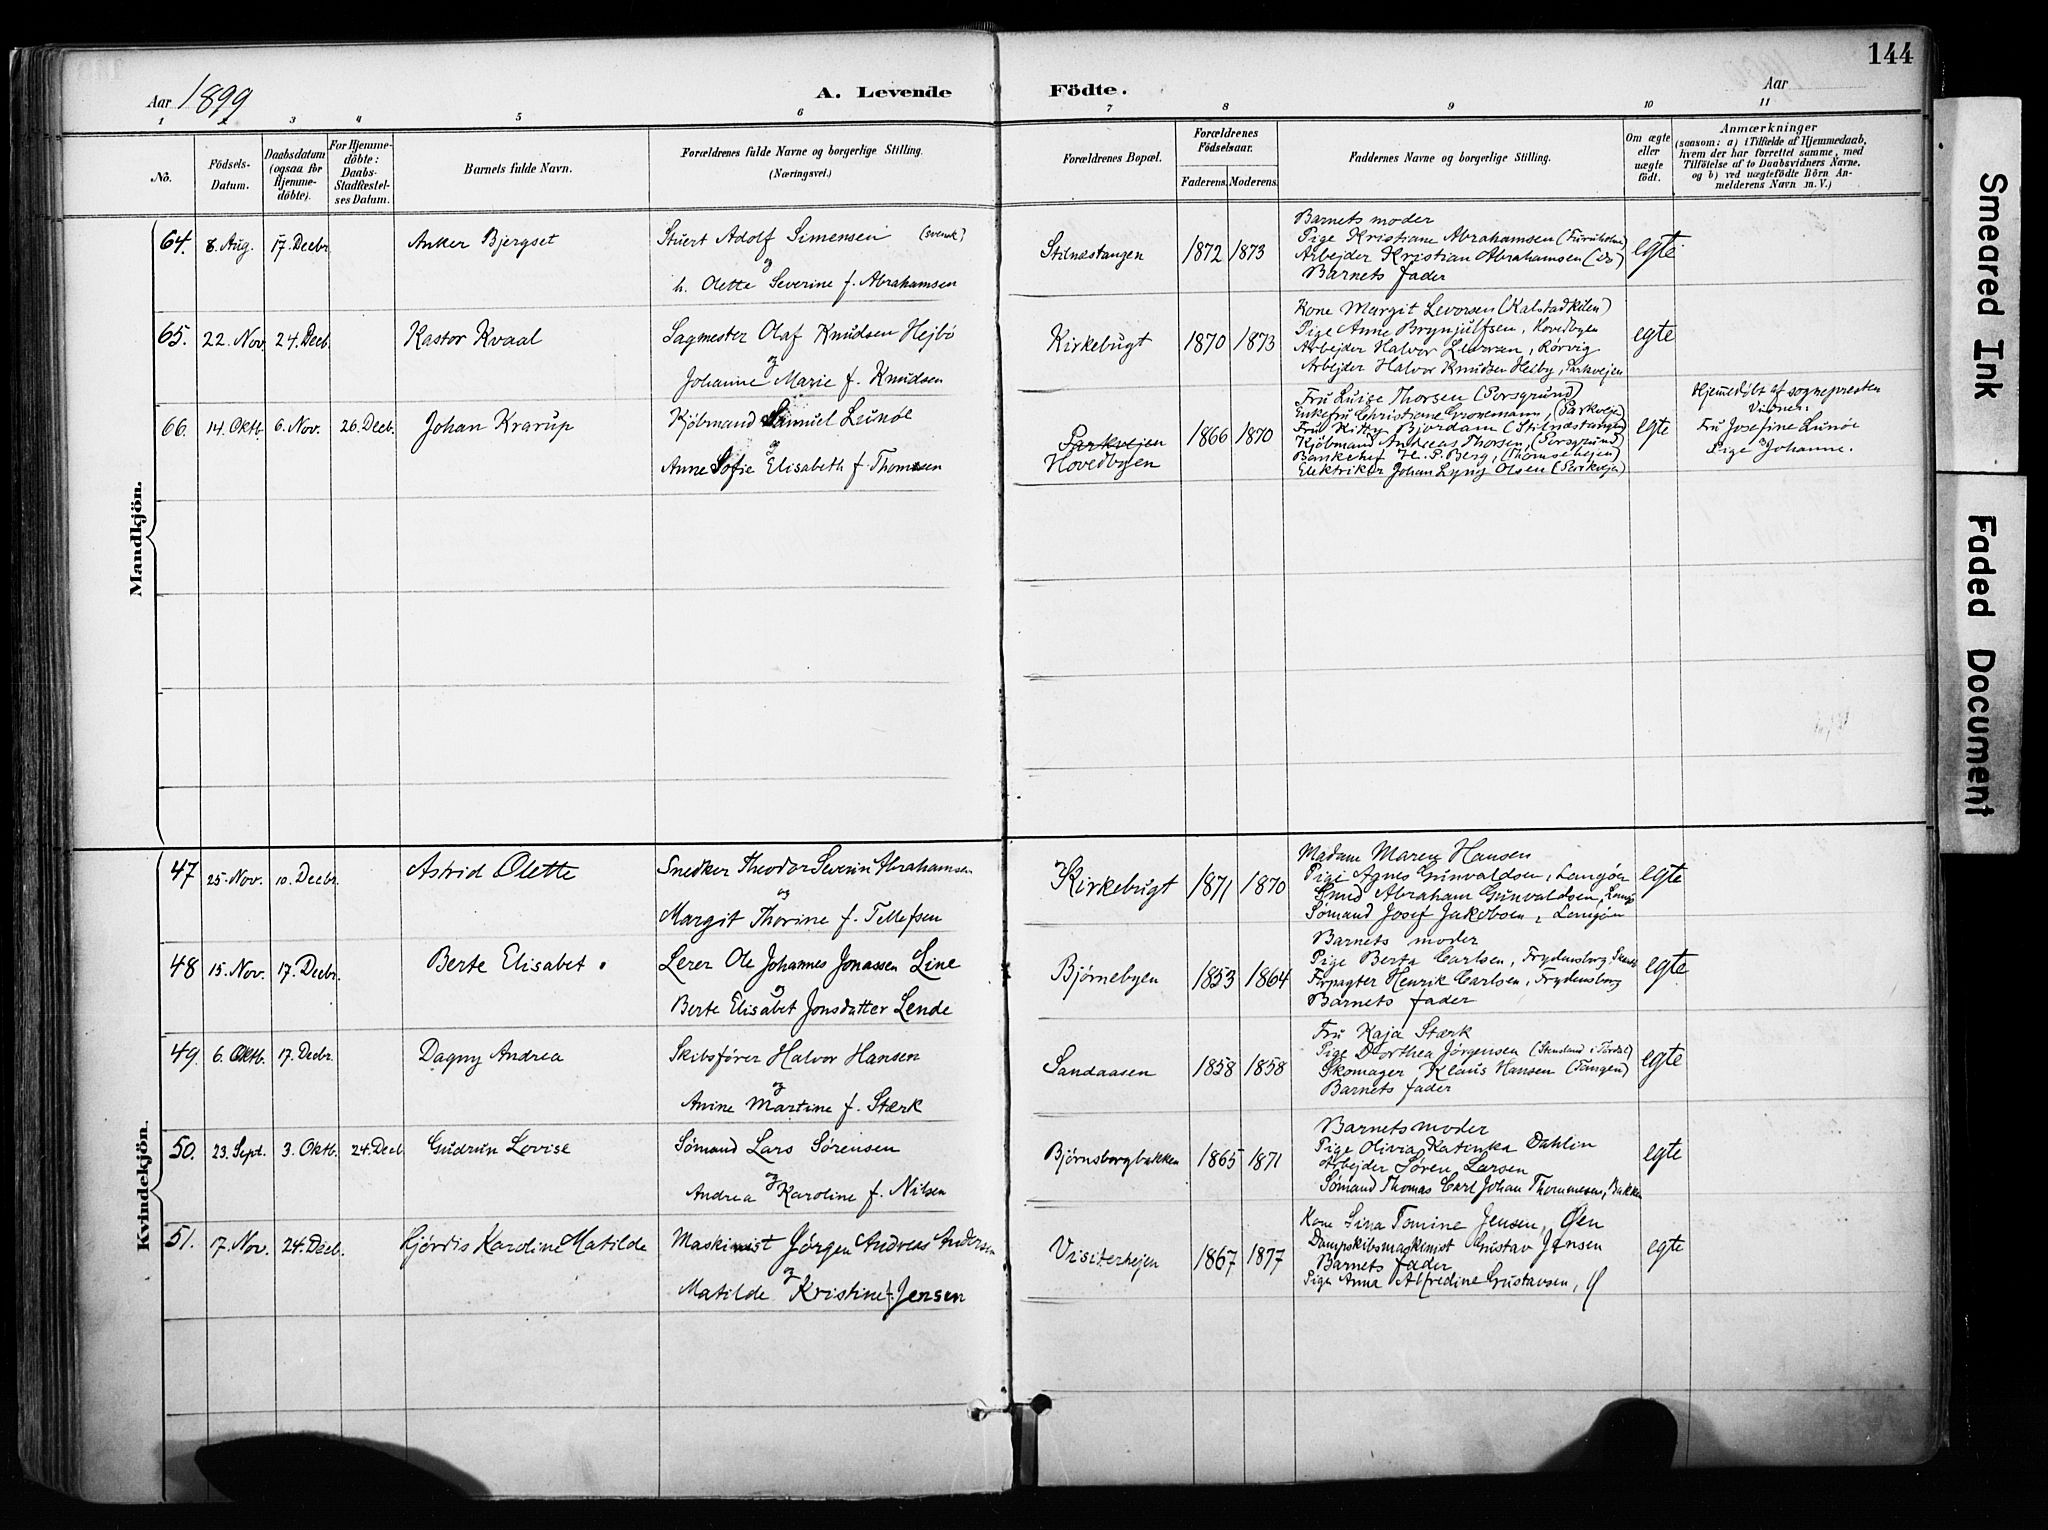 144
Aar 1899
A. Levende Födte.
Aar
1 2 3 4 5 6 7 8 9 10 11
No.
Födsels-Datum.
Daabsdatum (ogsaa for Hjemme-döbte).
For Hjemme-döbte: Daabs-Stadfæstel-ses Datum.
Barnets fulde Navn.
Forældrenes fulde Navne og borgerlige Stilling.
(Næringsvei.)
Forældrenes Bopæl.
Forældrenes Födselsaar.
Faderens. Moderens.
Faddernes Navne og borgerlige Stilling.
Om ægte eller uægte födt.
Anmærkninger
(saasom: a) i Tilfælde af Hjemmedaab, hvem der har forrettet samme, med Tilföielse af to Daabsvidners Navne, og b) ved uægtefödte Börn An-melderens Navn m. V.)
Mandkjön.
64. 8. Aug. 17. Decbr. Anker Bjergset
Stuert Adolf Simensen (svensk)
og
h. Olette Severine f. Abrahamsen
Stilnæstangen 1872 1873
Barnets moder
Pige Kristiane Abrahamsen (Furuholm)
Arbejder Kristian Abrahamsen (do)
Barnets fader
egte
65. 22. Nov. 24. Decb. Kastor Kvaal
Sagmester Olaf Knudsen Hejbö
og
Johanne Marie f. Knudsen
Kirkebugt 1870 1873
Kone Margit Levorsen (Kalstadkilen)
Pige Anne Brynjulfsen, Hovedbyen
Arbejder Halvor , Rörvig
Arbejder Halvor Knudsen Heiby, Parkvejen
egte
66. 14. Oktb. 6. Nov. 26. Decb. Johan Krarup
Kjöbmand Samuel Lunöe
og
Anne Sofie Elisabeth f. Thomsen
Parkvejen
Hovedbyen
1866 1870
Fru Luise Thorsen (Porsgrund)
Enkefru Christiane Gronemann, (Parkveje)
Fru Kitty Bjordam (Stilnæstangen)
Kjöbmand Andreas Thorsen, (Porsgrund)
Bankchef H. P. Berg, (Thomsehejen)
Elektriker Johan Lyng Olsen (Parkvejn)
egte
Hjemmedøbt af sognepresten
Vidner:
Fru Josefine Lunöe
Pige Johanne.
Kvindekjön.
47 25. Nov. 10. Decbr. Astrid Olette
Snedker Theodor Severin Abrahamsen
og
Margit Thorine f. Tellefsen
Kirkebugt 1871 1870
Madam Maren Hansen
Pige Agnes Gunvaldsen, Langöen
Smed Abraham Gunvaldsen, Langö
Sømand Josef Jakobsen, Langöen
egte
48 15. Nov. 17. Decbr. Berte Elisabet
Lærer Ole Johannes Jonassen Line
og
Berte Elisabet Jonsdatter Lende
Bjørnebyen 1853 1864
Barnets moder
Pige Berta Carlsen, Frydensborg,
Forpagter Henrik Carlsen, Frydensborg
Barnets fader
egte
49. 6. Oktb. 17. Decbr. Dagny Andrea
Skibsfører Halvor Hansen
og
Anine Martine f. Stærk
Sandaasen 1858 1858
Fru Kaja Stærk
Pige Dorthea Jørgensen ( i Tördal)
Skomager Klaus Hansen (Tangen)
Barnets fader
egte
50. 23. Sept. 3. Oktb. 24. Decb. Gudrun Lovise
Sømand Lars Sørensen
og
Andrea Karoline f. Nilsen
Bjørnsborgbakken 1865 1871
Barnets moder
Pige Olivia Katinka Dahlin
Arbejder Søren Larsen
Sømand Thomas Carl Johan Thommesen, Bakken
egte
51. 17. Nov. 24. Decb. Hjördis Karoline Matilde
Maskinist Jørgen Andreas Andersen
og
Matilde Kristine f. Jensen
Visiterhejen 1867 1877
Kone Lina Tomine Jensen, Øen
Dampskibsmaskinist Gustav Jensen
Barnets fader
Pige Anna Alfredine Gustavsen, Ø
egte
Smeared Ink
Faded Document